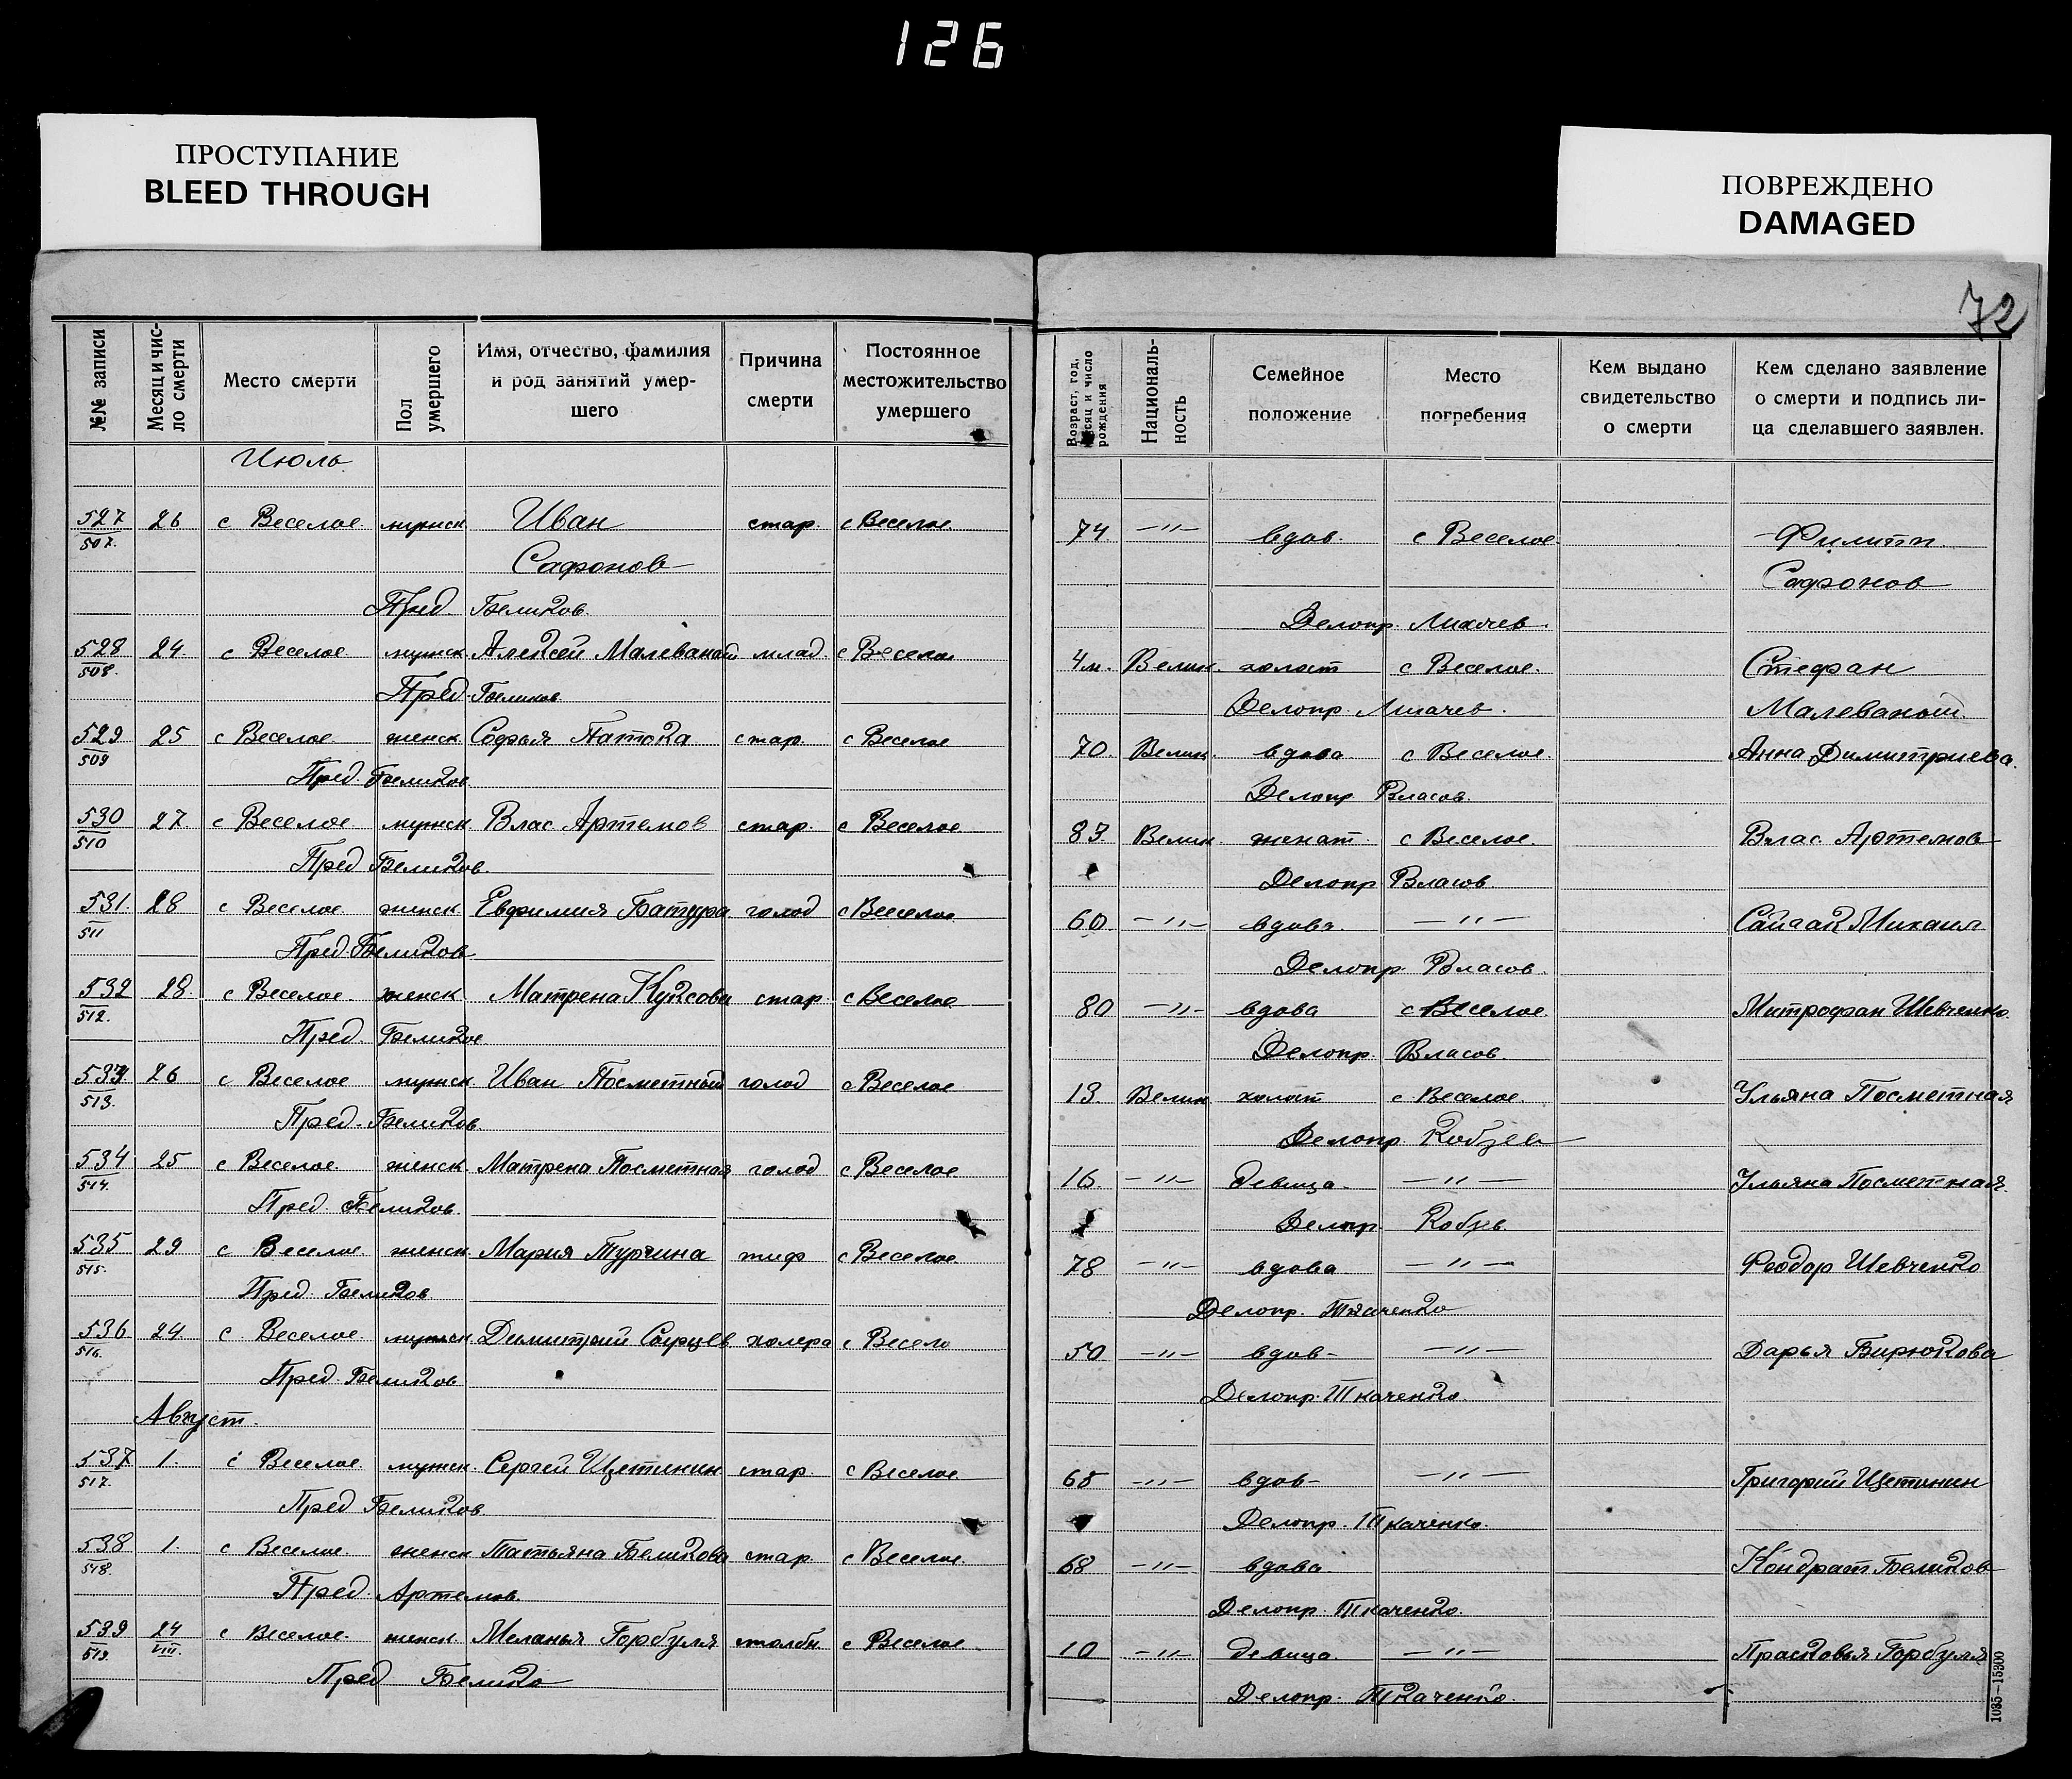 126
ПРОСТУПАНИЕ
BLEED THROUGH
ПОВРЕЖДЕНО
DAMAGED
72
№№ записи | Месяц и число смерти | Место смерти | Пол умершего | Имя, отчество, фамилия и род занятий умершего | Причина смерти | Постоянное местожительство умершего | Возраст, год, месяц и число рождения | Националь-ность | Семейное положение | Место погребения | Кем выдано свидетельство о смерти | Кем сделано заявление о смерти и подпись ли-ца сделавшего заявлен.
Июль
527 26 с Веселое мужск Иван стар. с Веселое 74 —"— вдов. с Веселое Филипп
507. Сафонов Сафонов
Пред. Беликов. Делопр. Лихачев.
528 24 с Веселое мужск Алексей Малеваной млад. с Веселое 4 м. Велик. холост с Веселое. Стефан
508. Пред. Беликов Делопр. Лихачев. Малеваный.
529 25 с Веселое женск Софья Патока стар. с Веселое 70. Велик. вдова с Веселое. Анна Димитриева.
509 Пред. Беликов Делопр Власов.
530 27. с Веселое мужск Влас Артемов стар. с Веселое 83 Велик. женат с Веселое. Влас Артемов
510 Пред Беликов. Делопр Власов
531. 28 с Веселое женск Евфимия Батура голод с Веселое 60. —"— вдова. —"— Михаил
511 Пред. Беликов Делопр. Власов.
532 28. с Веселое женск Матрена стар с Веселое 80 —"— вдова с Веселое. Митрофан Шевченко.
512. Пред. Беликов Делопр. Власов.
533 26 с Веселое мужск Иван Посметный голод с Веселое 13. Велик холост с Веселое. Ульяна Посметная
513. Пред. Беликов. Делопр. Кобзев
534 25 с Веселое женск Матрена Посметная голод с Веселое 16. —"— девица —"— Ульяна Посметная.
514. Пред. Беликов. Делопр. Кобзев
535 29 с Веселое женск Мария Турчина тиф с Веселое 78 —"— вдова —"— Феодор Шевченко
515. Пред. Беликов Делопр. Ткаченко
536 24 с Веселое мужск Димитрий холера с Весело 50 —"— вдов —"— Дарья Бирюкова
516. Пред. Беликов Делопр. Ткаченко.
Август.
537 1. с Веселое мужск. Сергей Щетинин стар. с Веселое 65 —"— вдов —"— Григорий Щетинин
517. Пред Беликов. Делопр. Ткаченко.
538 1. с Веселое женск Татьяна Беликова стар. с Веселое 68 —"— вдова. Кондрат Беликов
518. Пред. Артемов. Делопр. Ткаченко.
539 24 с Веселое женск. Меланья Горбуля столбн. с Веселое 10 —"— девица. —"— Прасковья Горбуля
519. VIII Пред Велико Делопр. Ткаченко.
1035—15300